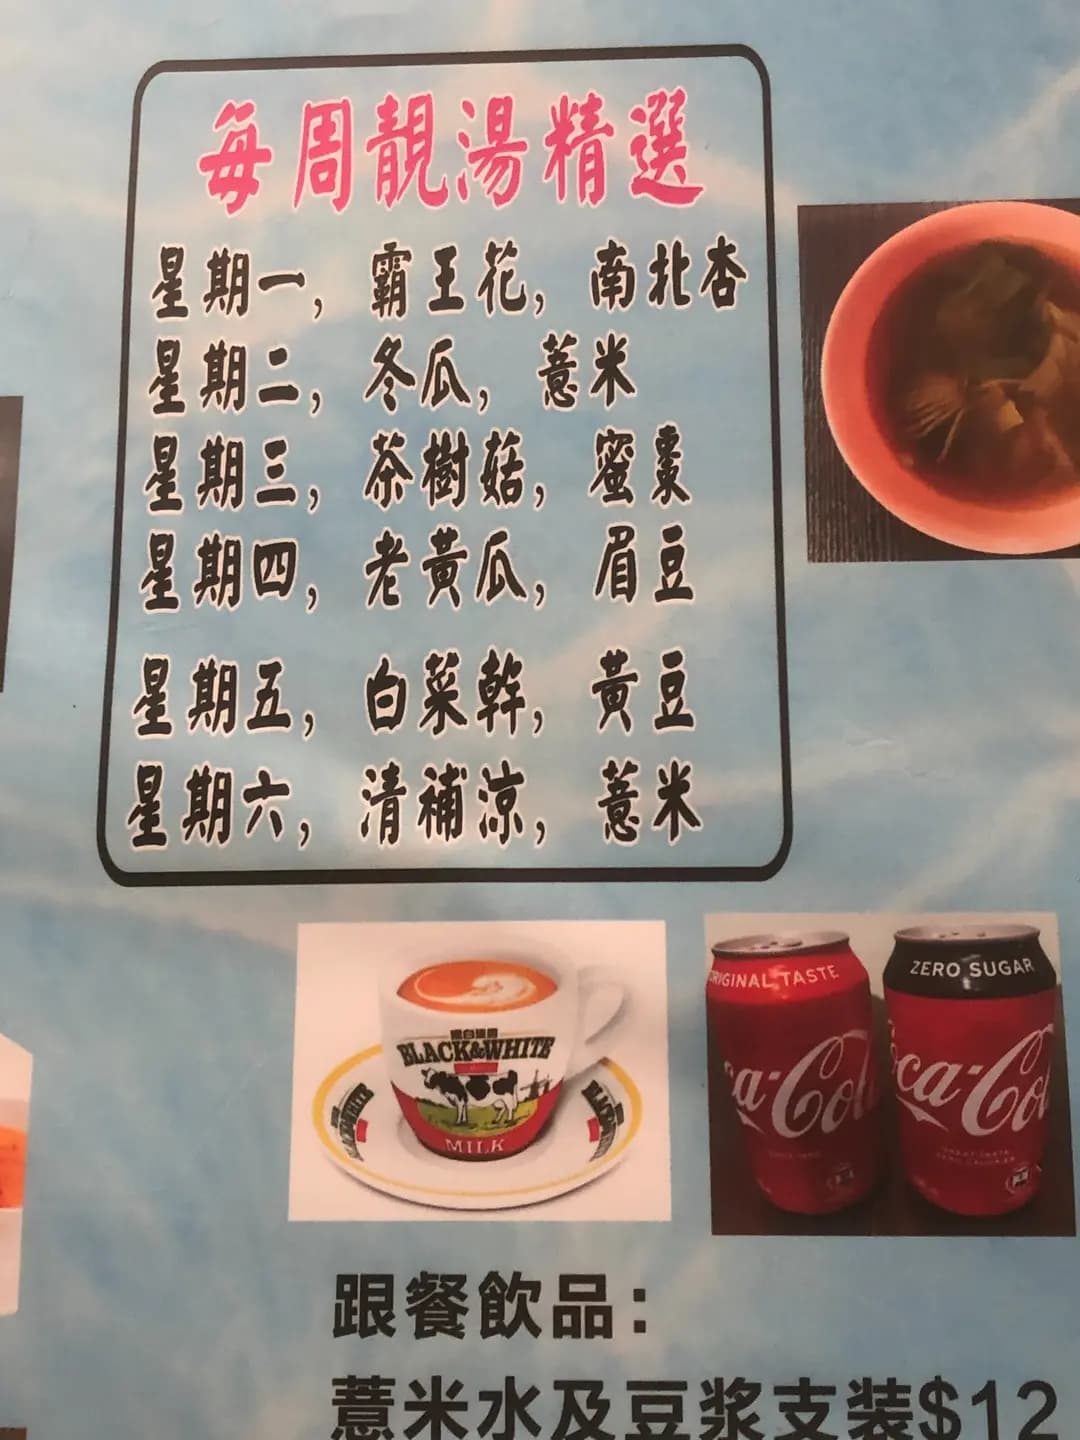 每周靚湯精選
星期一, 霸王花, 南北杏
星期二, 冬瓜, 薏米
星期三, 茶樹菇, 蜜棗
星期四, 老黃瓜, 眉豆
星期五, 白菜幹, 黃豆
星期六, 清補涼, 薏米
BLACK&WHITE
MILK
ORIGINAL TASTE
ZERO SUGAR
ca-Col
oca-Co
跟餐飲品:
薏米水及豆浆支装$12